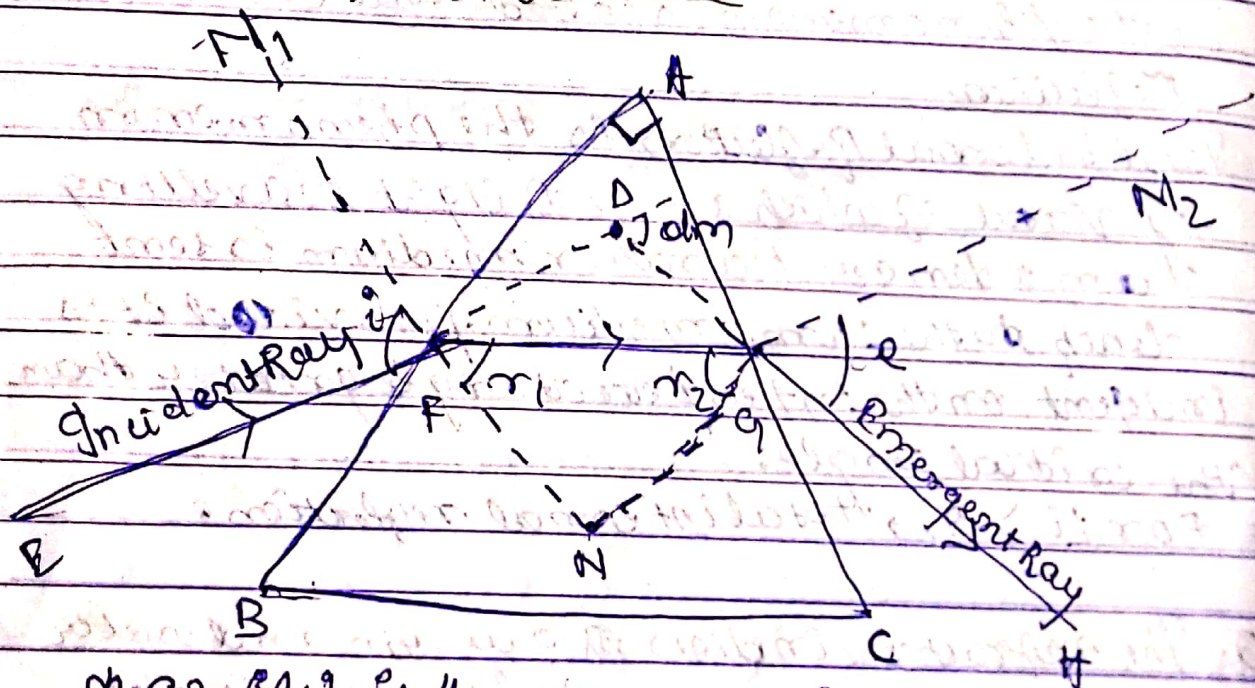 A
N2
D
dm
i
Incident Ray
r1
r2
e
F
G
Emergent Ray
E
N
B
C
H